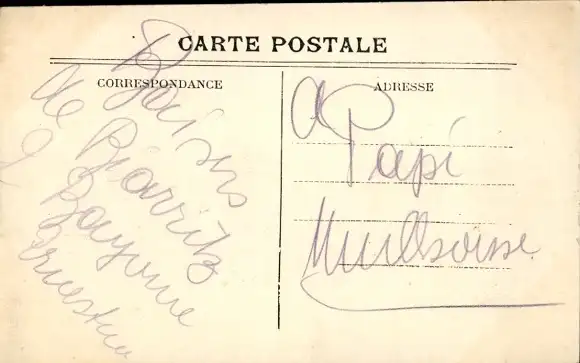 CARTE POSTALE
CORRESPONDANCE
Baisers
de Biarritz
& Bayonne
Ernestine
ADRESSE
A
Papi